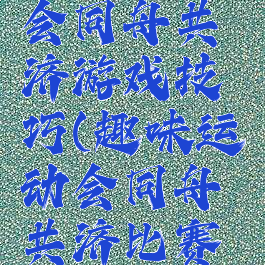 会同舟共
济游戏技
巧(趣味运
动会同舟
共济比赛